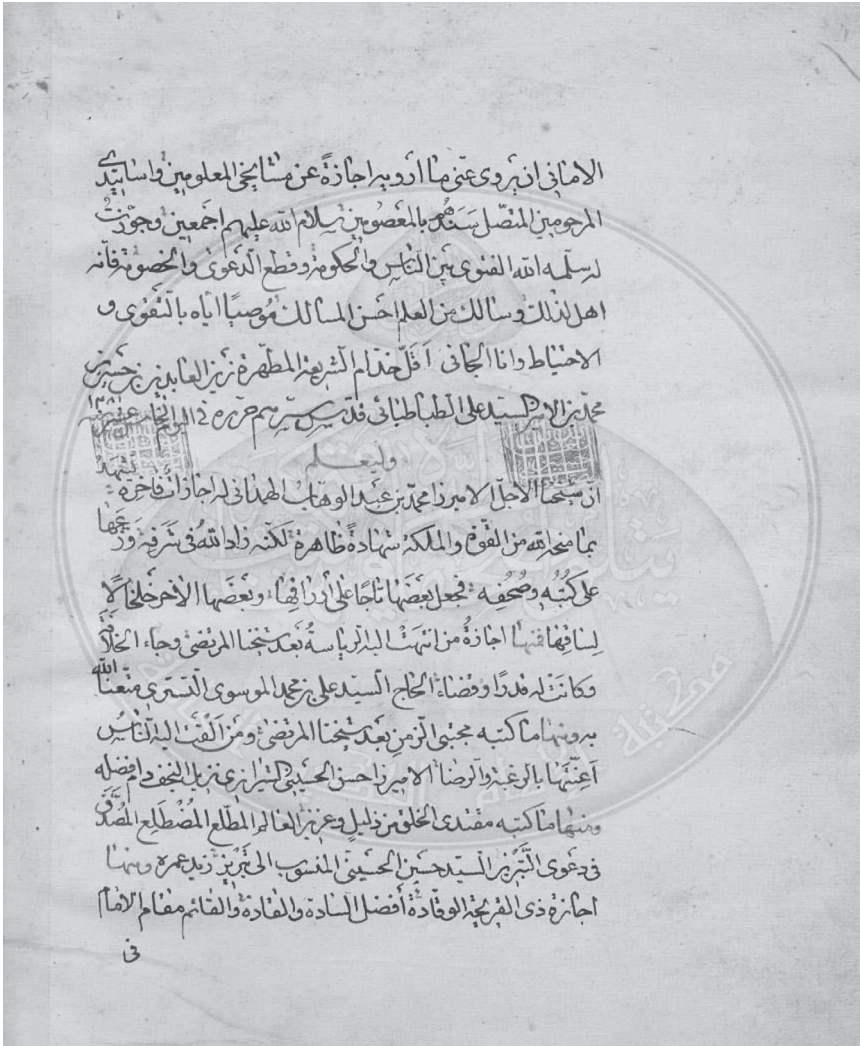 الاماني ان يروي عنّي ما أرويه اجازةً عن مشايخي المعلومين واساتيدي
المرحومين المتصل سندهم بالمعصومين سلام الله عليهم اجمعين وجوّزت
له سلّمه الله الفتوى بين الناس والحكومة وقطع الدعوى والخصومة فانّه
اهل لذلك وسالك من العلم احسن المسالك مُوصيًا ايّاه بالتقوى و
الاحتياط وانا الجاني أقلّ خدّام الشريعة المطهرة زين العابدين بن حسين بن
محمد بن الامير السيد علي الطباطبائي قدّس سرّهم حرّره في اليوم
وليعلم
أنّ شيخنا الاجلّ الاميرزا محمد بن عبد الوهاب الهمداني له اجازات فاخرة تشهد
بما منحه الله من القوّة والملكة شهادةً ظاهرة لكنّه زاد الله في شرفه وزّعها
على كتبه وصُحُفه فجعل بعضها تاجًا على أوراقها وبعضها الآخر خلخالًا
لساقها فمنها اجازةُ من انتهت اليه الرياسةُ بعد شيخنا المرتضى وجاء الخلافة
وكانت له قدرًا وقضاءً الحاج السيد علي بن محمد الموسوي التستري متّعنا الله
به ومنها ما كتبه مجتبى الزمن بعد شيخنا المرتضى ومن القت اليه الناس
أعنّتها بالرغبة والرضا الاميرزا حسن الحسيني الشيرازي نزيل النجف دام فضله
ومنها ما كتبه مقتدى الخلق من ذليل وعزيز العالم المطّلع المُضْطَلِع المُصَدَّق
في دعوى التَّبَرُّز السيد حسين الحسيني المنسوب الى تبريز زيد عمره ومنها
اجازة ذي القريحة الوقّادة أفضل السادة والقادة والقائم مقام الامام
في